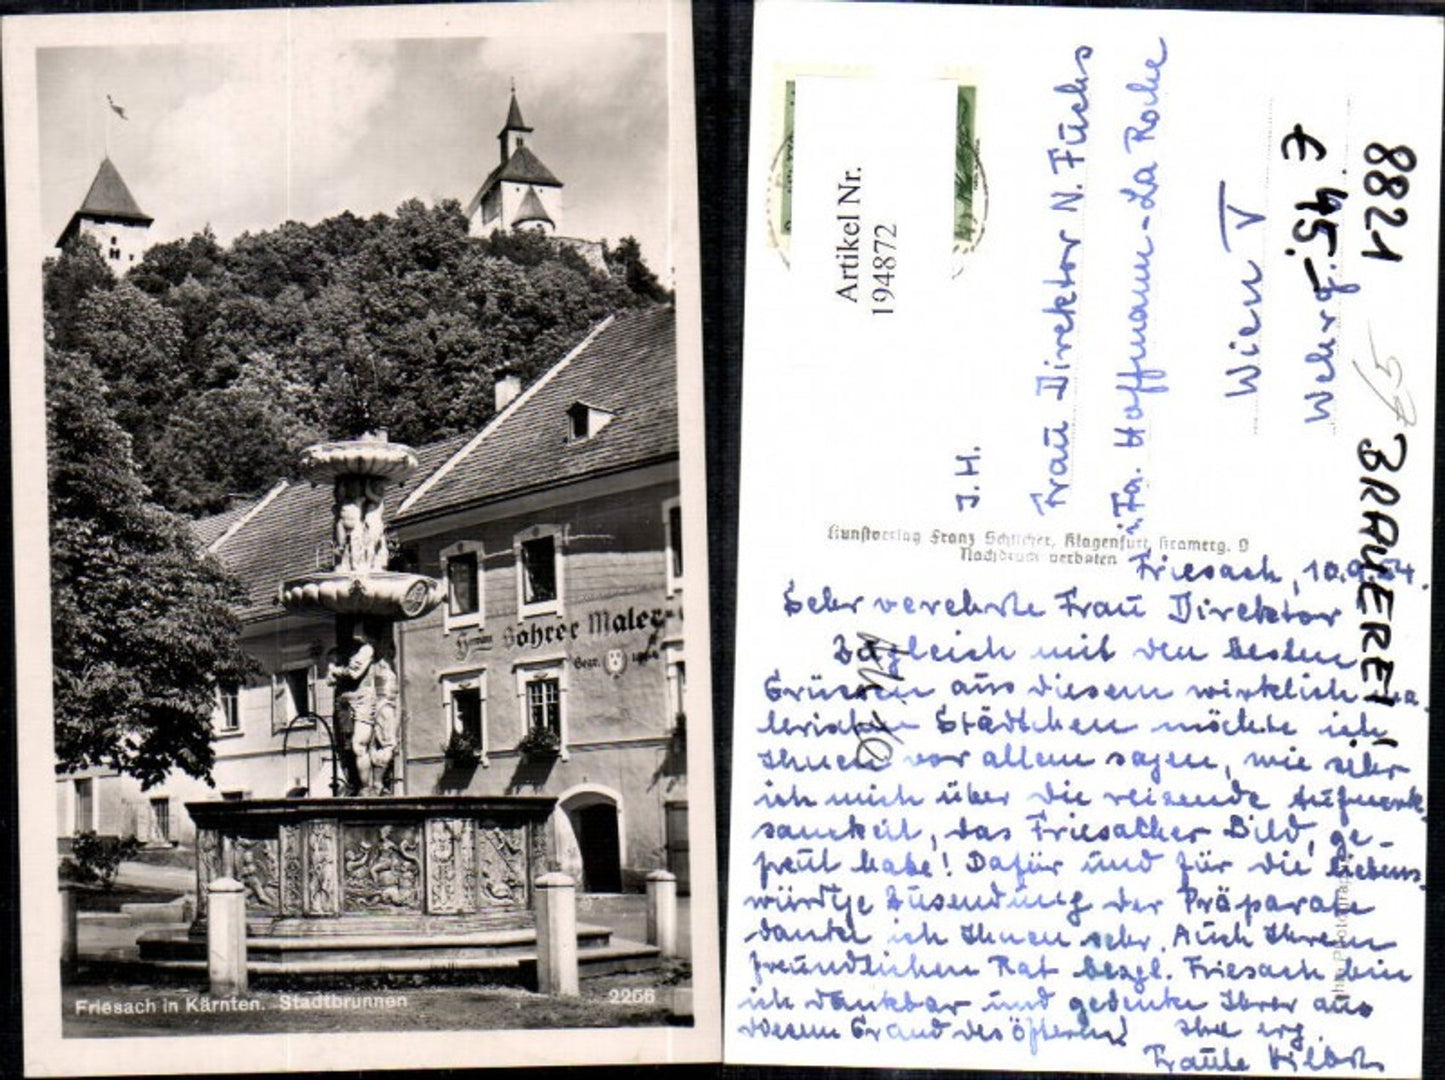 Bohrer Maler
Gegr.
Friesach in Kärnten. Stadtbrunnen
2256
Artikel Nr.
194872
J.H.
Frau Direktor N. Fuchs
Fa. Hoffmann-La Roche
Wien V
Wehrg.
8821
BRAUEREI
Kunstverlag Franz Schlicher, Klagenfurt, Kramerg. 9
Nachdruck verboten
Friesach, 10.9.54.
Sehr verehrte Frau Direktor
Zugleich mit den besten
Grüssen aus diesem wirklich
Städtchen möchte ich
Ihnen vor allem sagen, wie sehr
ich mich über die reizende Aufmerk-
samkeit, das Friesacher Bild, ge-
freut habe! Dafür und für die liebens-
würdige Zusendung der Präparate
danke ich Ihnen sehr. Auch Ihrem
freundlichen Rat bezgl. Friesach bin
ich dankbar und gedenke Ihrer aus
diesem Grund des öfteren! Ihre erg.
Traute